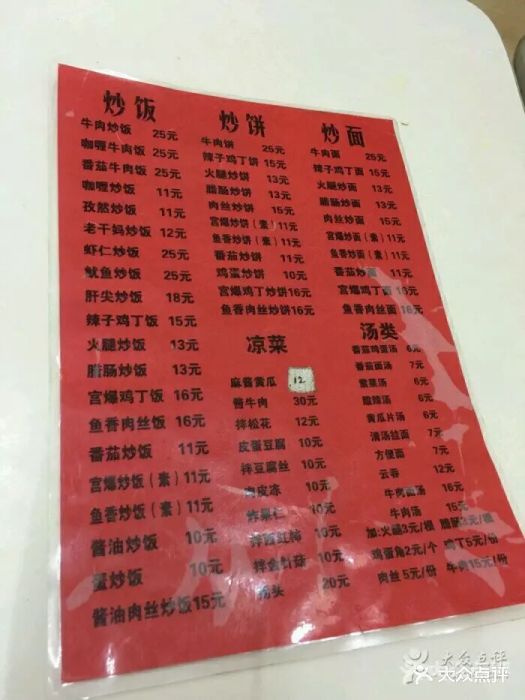 炒饭
牛肉炒饭 25元
咖喱牛肉饭 25元
番茄牛肉饭 25元
咖喱炒饭 11元
孜然炒饭 11元
老干妈炒饭 12元
虾仁炒饭 25元
鱿鱼炒饭 25元
肝尖炒饭 18元
辣子鸡丁饭 15元
火腿炒饭 13元
腊肠炒饭 13元
宫爆鸡丁饭 16元
鱼香肉丝饭 16元
番茄炒饭 11元
宫爆炒饭(素)11元
鱼香炒饭(素)11元
酱油炒饭 10元
蛋炒饭 10元
酱油肉丝炒饭15元
炒饼
牛肉饼 25元
辣子鸡丁饼 15元
火腿炒饼 13元
腊肠炒饼 13元
肉丝炒饼 15元
宫爆炒饼(素)11元
鱼香炒饼(素)11元
番茄炒饼 11元
鸡蛋炒饼 10元
宫爆鸡丁炒饼16元
鱼香肉丝炒饼16元
凉菜
麻酱黄瓜 12
酱牛肉 30元
拌松花 12元
皮蛋豆腐 10元
拌豆腐丝 10元
肉皮冻 10元
炸果仁 10元
拌 10元
拌金针菇 10元
20元
炒面
牛肉面 25元
辣子鸡丁面 15元
火腿炒面 13元
腊肠炒面 13元
肉丝炒面 15元
宫爆炒面(素)11元
鱼香炒面(素)11元
番茄炒面 11元
宫爆鸡丁面 16元
鱼香肉丝面 16元
汤类
番茄鸡蛋汤 6元
番茄面汤 7元
紫菜汤 6元
酸辣汤 6元
黄瓜片汤 6元
清汤挂面 7元
方便面 7元
云吞 12元
牛肉面汤 16元
牛肉汤 15元
加:火腿3元/根 腊肠3元/根
鸡蛋角2元/个 鸡丁5元/份
肉丝 5元/份 牛肉15元/份
大众点评
大众点评